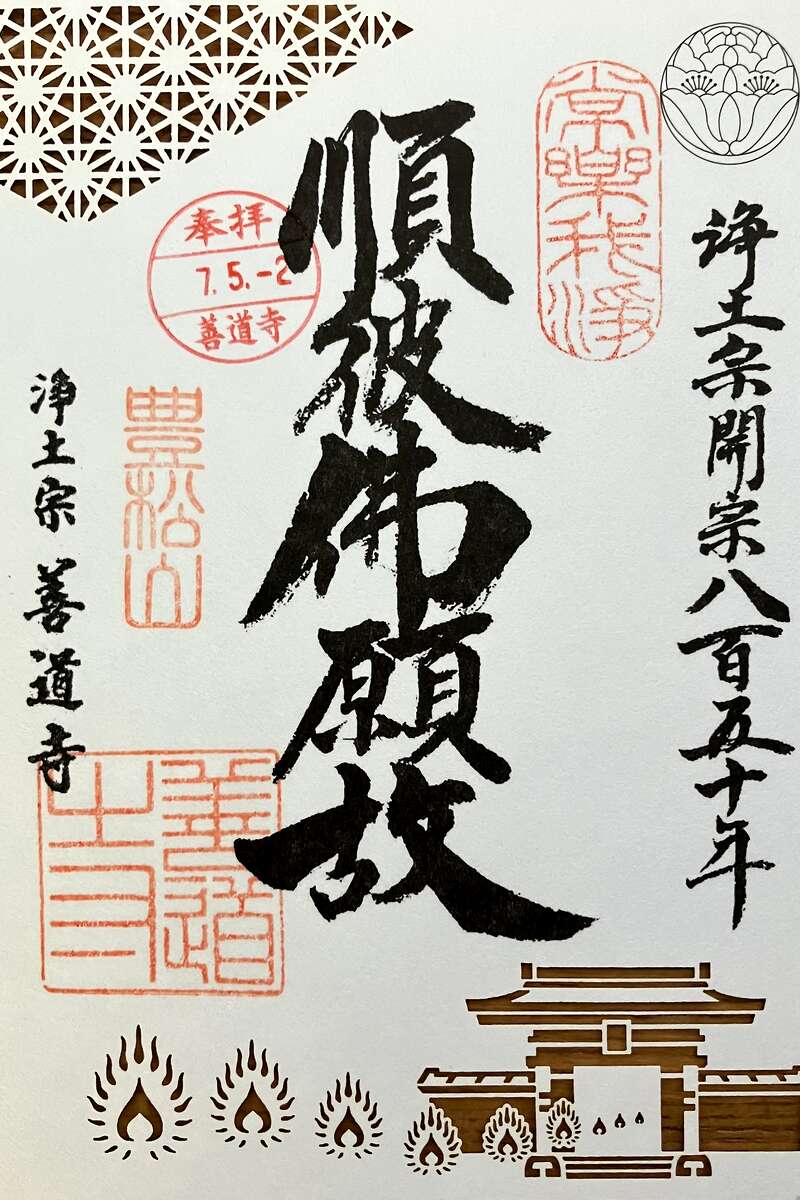 浄土宗開宗八百五十年
常樂我浄
順彼佛願故
奉拝
7.5.-2
善道寺
豊松山
浄土宗 善道寺
善道寺